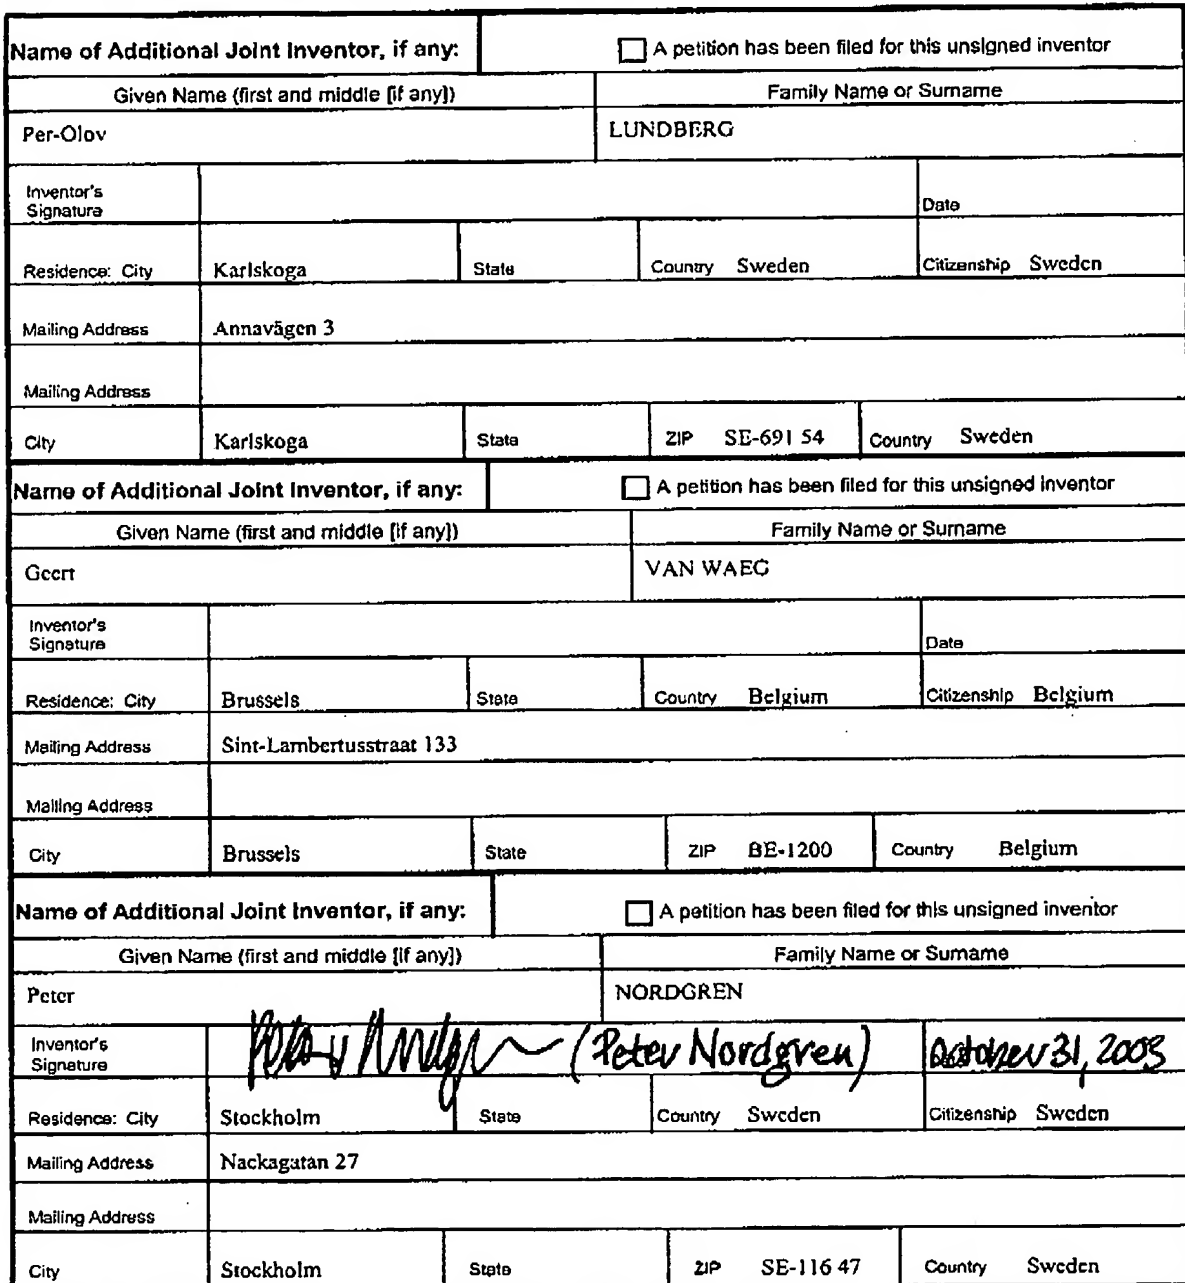 Name of Additional Joint Inventor, if any: ☐ A petition has been filed for this unsigned inventor
Given Name (first and middle [if any]) Family Name or Surname
Per-Olov LUNDBERG
Inventor's
Signature Date
Residence: City Karlskoga State Country Sweden Citizenship Sweden
Mailing Address Annavägen 3
Mailing Address
City Karlskoga State ZIP SE-691 54 Country Sweden
Name of Additional Joint Inventor, if any: ☐ A petition has been filed for this unsigned inventor
Given Name (first and middle [if any]) Family Name or Surname
Geert VAN WAEG
Inventor's
Signature Date
Residence: City Brussels State Country Belgium Citizenship Belgium
Mailing Address Sint-Lambertusstraat 133
Mailing Address
City Brussels State ZIP BE-1200 Country Belgium
Name of Additional Joint Inventor, if any: ☐ A petition has been filed for this unsigned inventor
Given Name (first and middle [if any]) Family Name or Surname
Peter NORDGREN
Inventor's
Signature (Peter Nordgren) October 31, 2003
Residence: City Stockholm State Country Sweden Citizenship Sweden
Mailing Address Nackagatan 27
Mailing Address
City Stockholm State ZIP SE-116 47 Country Sweden